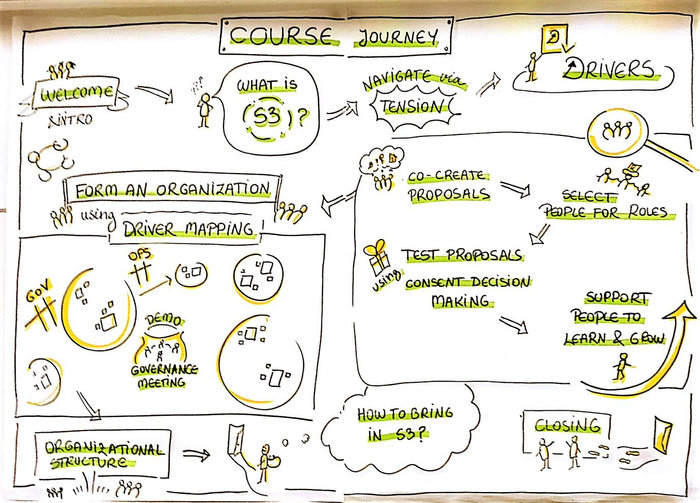 COURSE JOURNEY
WELCOME
&INTRO
WHAT IS
S3 ?
NAVIGATE via
TENSION
DRIVERS
CO-CREATE
PROPOSALS
SELECT
PEOPLE FOR ROLES
TEST PROPOSALS
using
CONSENT DECISION
MAKING
SUPPORT
PEOPLE TO
LEARN & GROW
FORM AN ORGANIZATION
using
DRIVER MAPPING
GOV
OPS
DEMO
GOVERNANCE
MEETING
ORGANIZATIONAL
STRUCTURE
HOW TO BRING
IN S3?
CLOSING